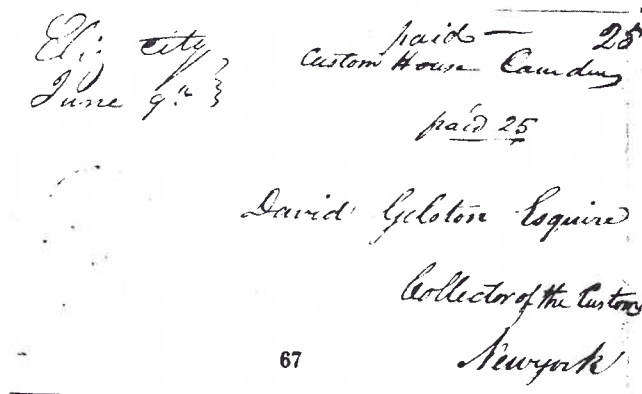 Eli: City
June 9th
paid — 25
Custom House Camden
paid 25
David Gelston Esquire
Collector of the Customs
Newyork
67